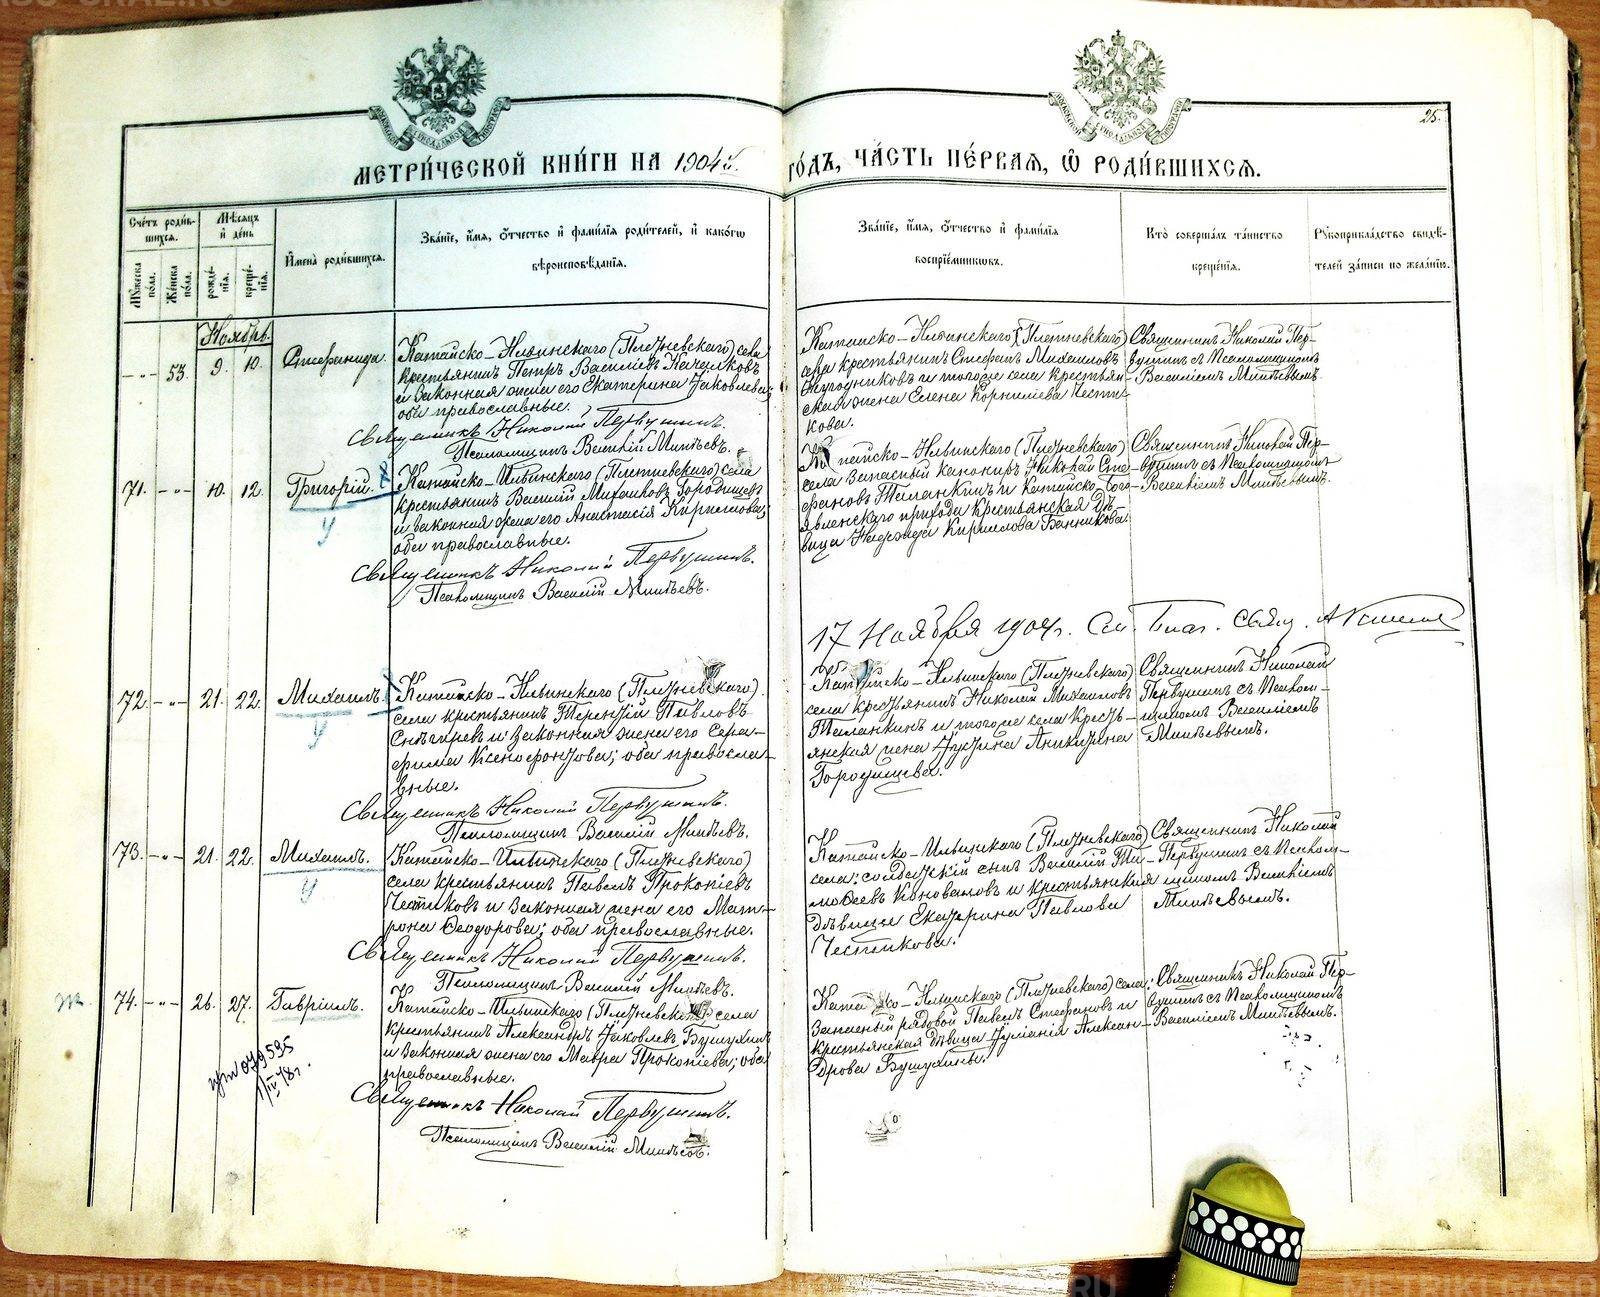 METRIKI.GASO-URAL.RU
25.
МЕТРИ́ЧЕСКОЙ КНИ́ГИ НА 1904й ГО́ДЪ, ЧА́СТЬ ПЕ́РВАЯ, Ѡ РОДИ́ВШИХСѦ.
Сче́тъ роди́в-
шихсѧ.
Мꙋ́жеска по́ла.
Же́нска по́ла.
Мѣ́сѧцъ
и҆ де́нь
рожде́-
нїѧ.
креще́-
нїѧ.
И҆мена̀ роди́вшихсѧ.
Зва́нїе, и҆́мѧ, ѻ҆́тчество и҆ фами́лїѧ роди́телей, и҆ како́гѡ
вѣроисповѣ́данїѧ.
Зва́нїе, и҆́мѧ, ѻ҆́тчество и҆ фами́лїѧ
воспрїе́мникѡвъ.
Кто̀ соверша́лъ та́инство
креще́нїѧ.
Рꙋкоприкла́дство свидѣ́-
телей за́писи по жела́нїю.
Ноябрь.
53. 9. 10. Стефанида.
Катайско-Ильинскаго (Плетневскаго) села
крестьянинъ Петръ Васильевъ Качалковъ
и законная жена его Екатерина Яковлева;
оба православные.
Священникъ Николай Первушинъ.
Псаломщикъ Василій Минѣевъ.
Катайско-Ильинскаго (Плетневскаго)
села крестьянинъ Стефанъ Михаиловъ
и того же села крестьян-
ская жена Елена Корнилиева Чести-
кова.
Священникъ Николай Пер-
вушинъ съ Псаломщикомъ
Василіемъ Минѣевымъ.
71. 10. 12. Григорій.
у
Катайско-Ильинскаго (Плетневскаго) села
крестьянинъ Василій Михаиловъ Городищевъ
и законная жена его Анастасія Кириллова;
оба православные.
Священникъ Николай Первушинъ.
Псаломщикъ Василій Минѣевъ.
Катайско-Ильинскаго (Плетневскаго)
села запасный канониръ Николай Сте-
фановъ Таланкинъ и Катайско-Бого-
явленскаго прихода крестьянская дѣ-
вица Надежда Кириллова Банникова.
Священникъ Николай Пер-
вушинъ съ Псаломщикомъ
Василіемъ Минѣевымъ.
17 Ноября 1904 г. См. Благ. свящ.
72. 21. 22. Михаилъ.
у
Катайско-Ильинскаго (Плетневскаго)
села крестьянинъ Терентій Павловъ
Снѣгиревъ и законная жена его Сера-
фима Ксенофонтова; оба православ-
вные.
Священникъ Николай Первушинъ.
Псаломщикъ Василій Минѣевъ.
Катайско-Ильинскаго (Плетневскаго)
села крестьянинъ Николай Михаиловъ
Таланкинъ и того же села кресть-
янская жена Аникитина
Городищева.
Священникъ Николай
Первушинъ съ Псалом-
щикомъ Василіемъ
Минѣевымъ.
73. 21. 22. Михаилъ.
у
Катайско-Ильинскаго (Плетневскаго)
села крестьянинъ Павелъ Прокопіевъ
Честиковъ и законная жена его Мат-
рона Ѳеодорова; оба православные.
Священникъ Николай Первушинъ.
Псаломщикъ Василій Минѣевъ.
Катайско-Ильинскаго (Плетневскаго)
села: солдатскій сынъ Василій Ти-
моѳеевъ Коноваловъ и крестьянская
дѣвица Екатерина Павлова
Честикова.
Священникъ Николай
Первушинъ съ Псалом-
щикомъ Василіемъ
Минѣевымъ.
74. 26. 27. Гавріилъ.
079595
1/IV 78 г.
Катайско-Ильинскаго (Плетневскаго) села
крестьянинъ Александръ Яковлевъ Бушухинъ
и законная жена его Мавра Прокопіева; оба
православные.
Священникъ Николай Первушинъ.
Псаломщикъ Василій Минѣевъ.
Катайско-Ильинскаго (Плетневскаго) села:
Запасный рядовой Павелъ Стефановъ и
крестьянская дѣвица Іуліанія Алексан-
дрова Бушухины.
Священникъ Николай Пер-
вушинъ съ Псаломщикомъ
Василіемъ Минѣевымъ.
METRIKI.GASO-URAL.RU